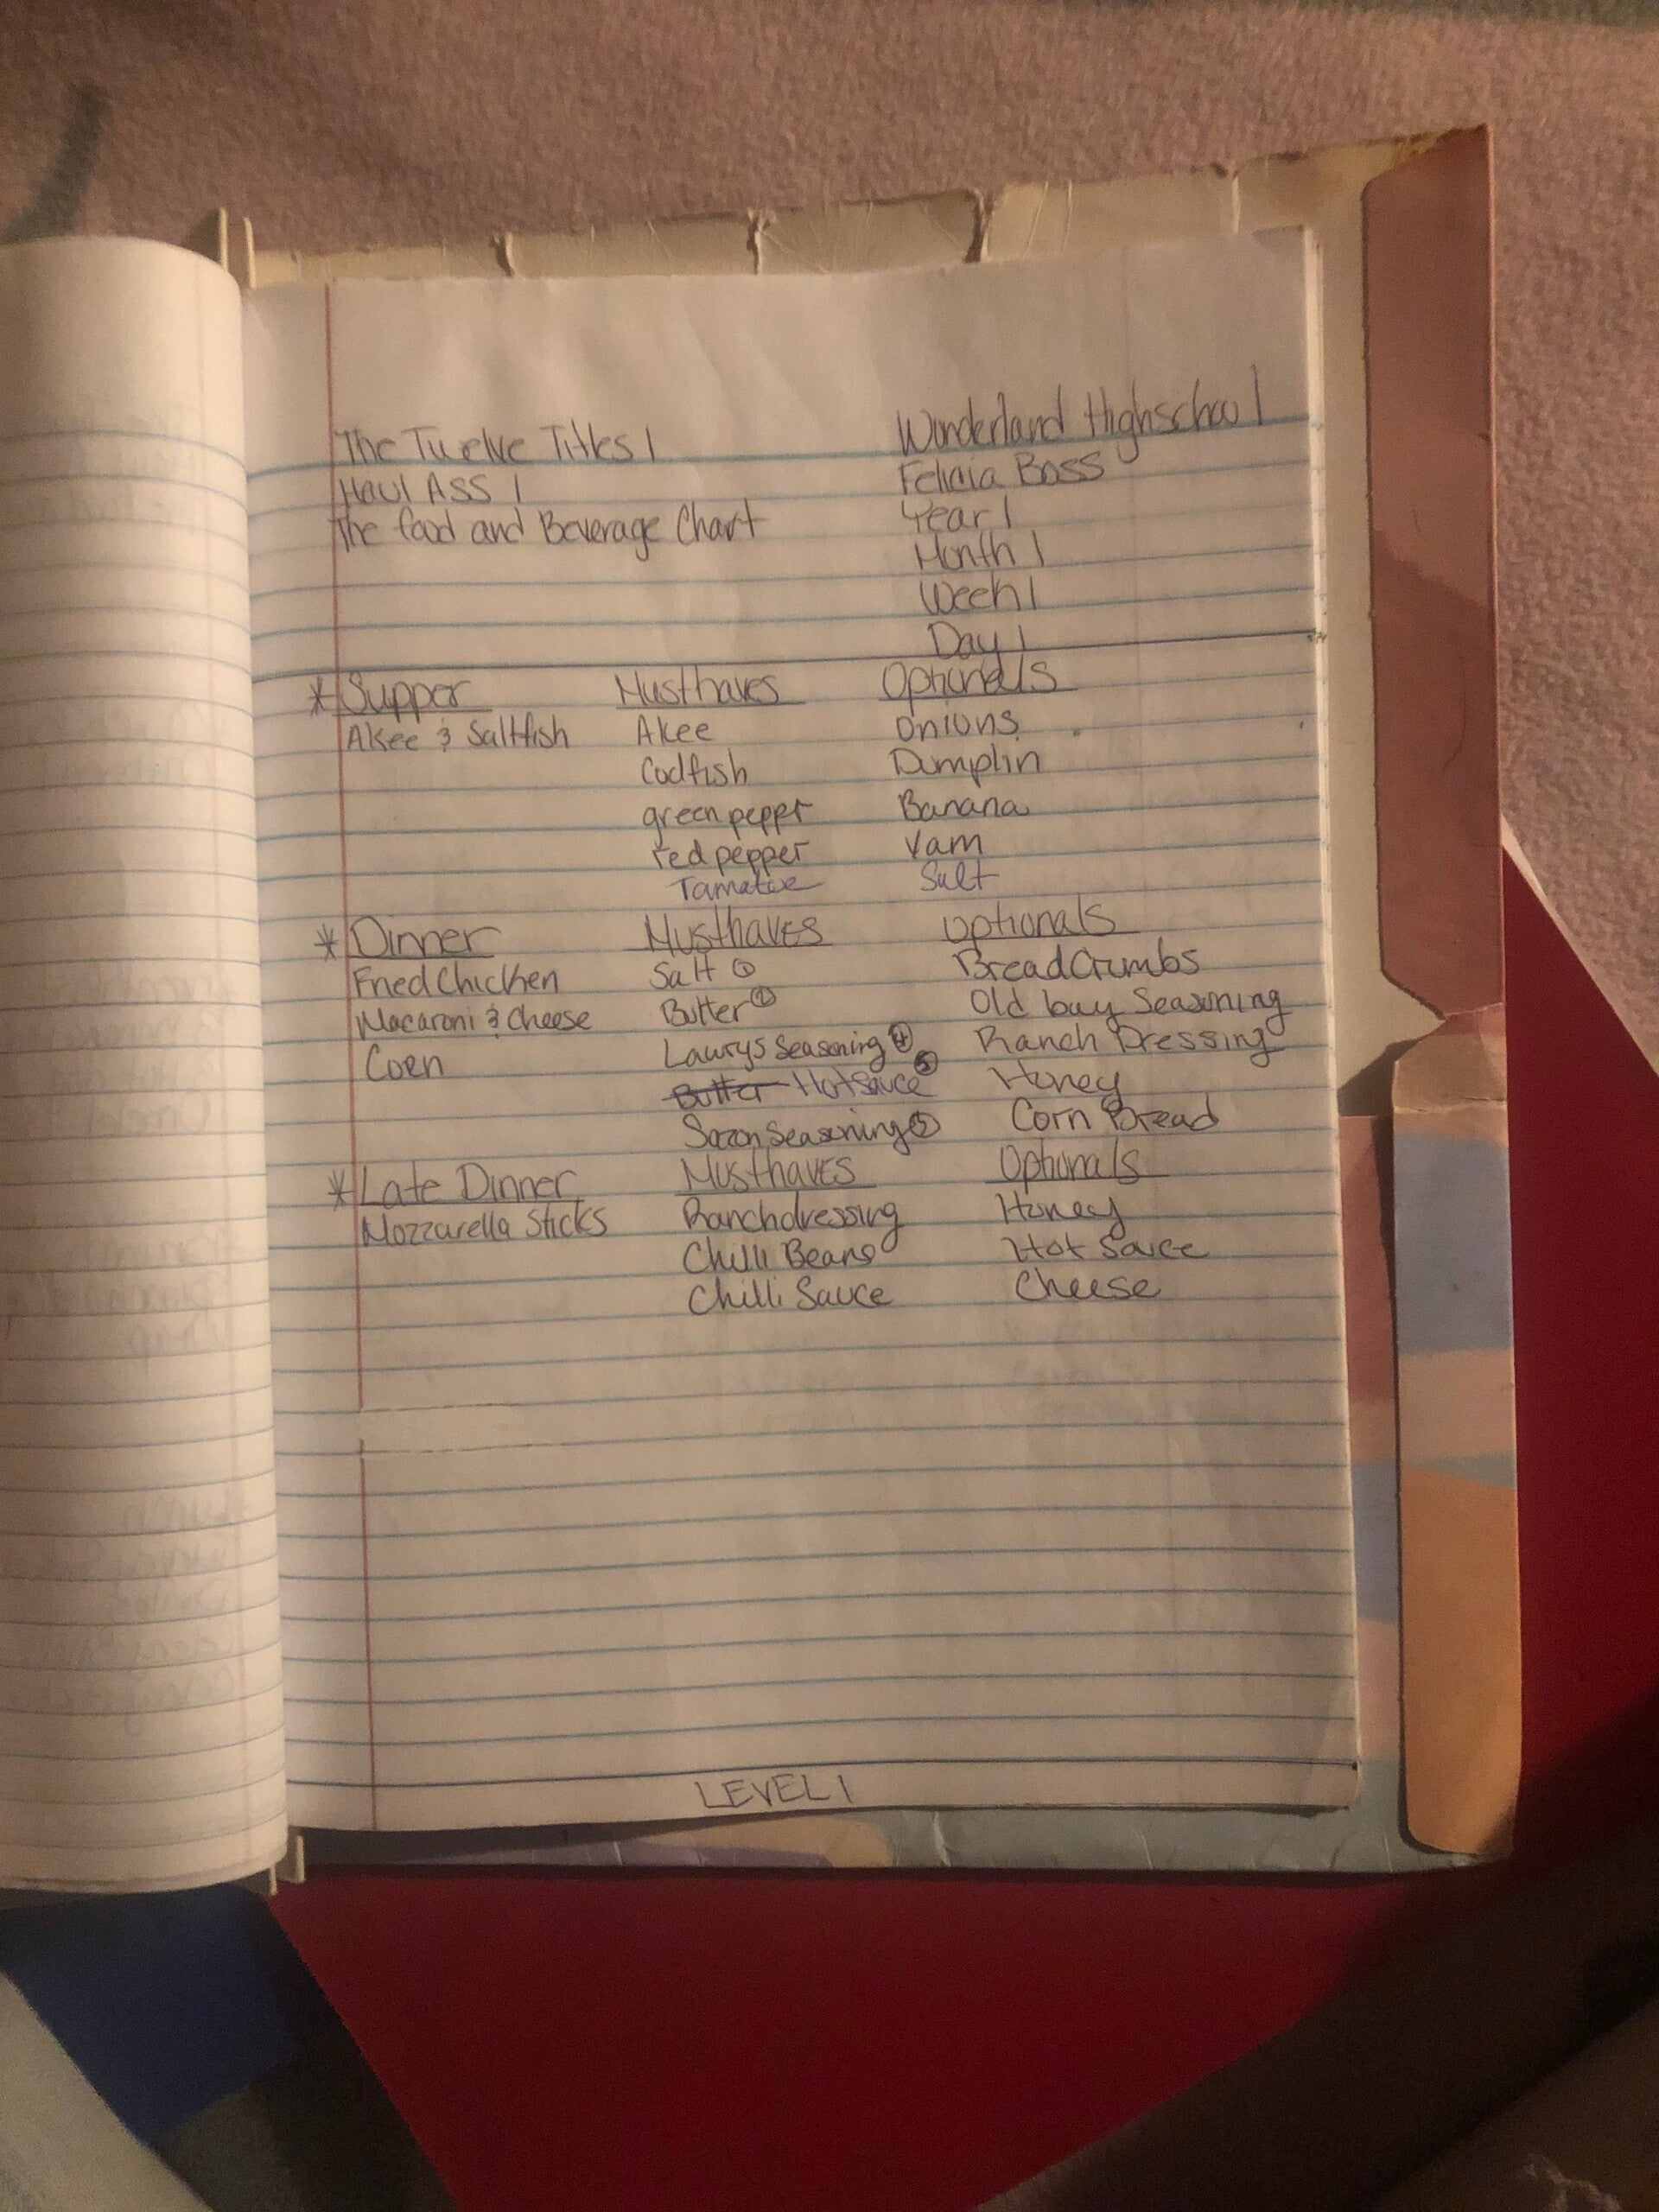 The Twelve Titles 1 Wonderland Highschool
Haul ASS 1 Felicia Boss
The food and Beverage Chart Year 1
Month 1
Week 1
Day 1
*Supper Musthaves Optionals
Akee & Saltfish Akee Onions
Codfish Dumplin
green pepper Banana
red pepper Yam
Tamatoe Salt
*Dinner Musthaves Optionals
Fried Chicken Salt ① BreadCrumbs
Macaroni & Cheese Butter Old bay Seasoning
Corn Lawrys Seasoning ④ Ranch Dressing
Butter Hot Sauce Honey
Sazon Seasoning Corn Bread
*Late Dinner Musthaves Optionals
Mozzarella Sticks Ranchdressing Honey
Chilli Beans Hot Sauce
Chilli Sauce Cheese
LEVEL 1